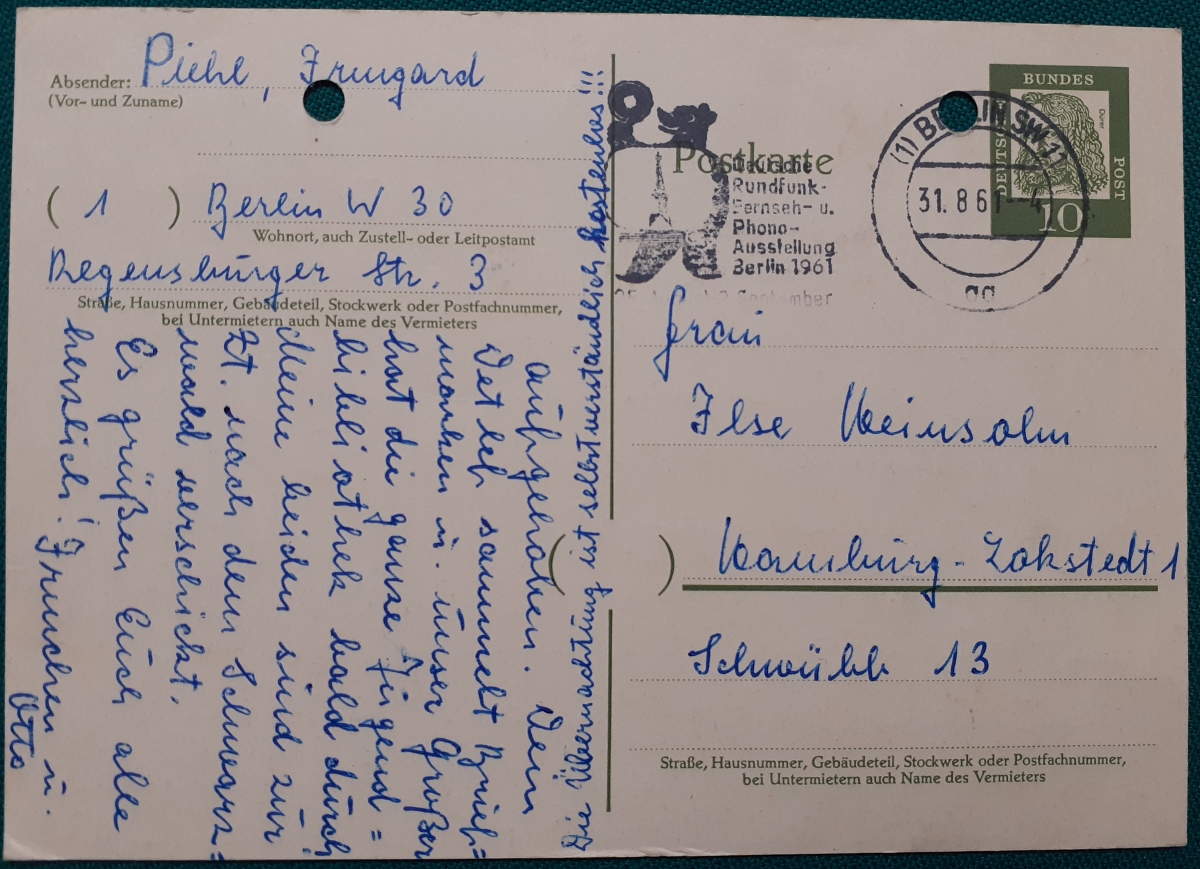 Absender: Piehl, Irmgard
(Vor- und Zuname)
( 1 ) Berlin W 30
Wohnort, auch Zustell- oder Leitpostamt
Regensburger Str. 3
Straße, Hausnummer, Gebäudeteil, Stockwerk oder Postfachnummer,
bei Untermietern auch Name des Vermieters
aufgehoben. Dein
Detlef sammelt Brief=
marken u. unser Großer
hat die ganze Jugend=
bibliothek bald durch
Meine beiden sind zur
Zt. nach dem Schwarz=
wald verschickt.
Es grüßen Euch alle
herzlich! Irmchen u.
Otto
Die Übernachtung ist selbstverständlich kostenlos!!!
Postkarte
Deutsche
Rundfunk-
Fernseh- u.
Phono-
Ausstellung
Berlin 1961
September
(1) BERLIN SW 11
31. 8 61 - 4
BUNDES
POST
DEUTSCHE
Dürer
10
Frau
Ilse Meinsohn
Hamburg-Lokstedt 1
( )
Schwübb 13
Straße, Hausnummer, Gebäudeteil, Stockwerk oder Postfachnummer,
bei Untermietern auch Name des Vermieters